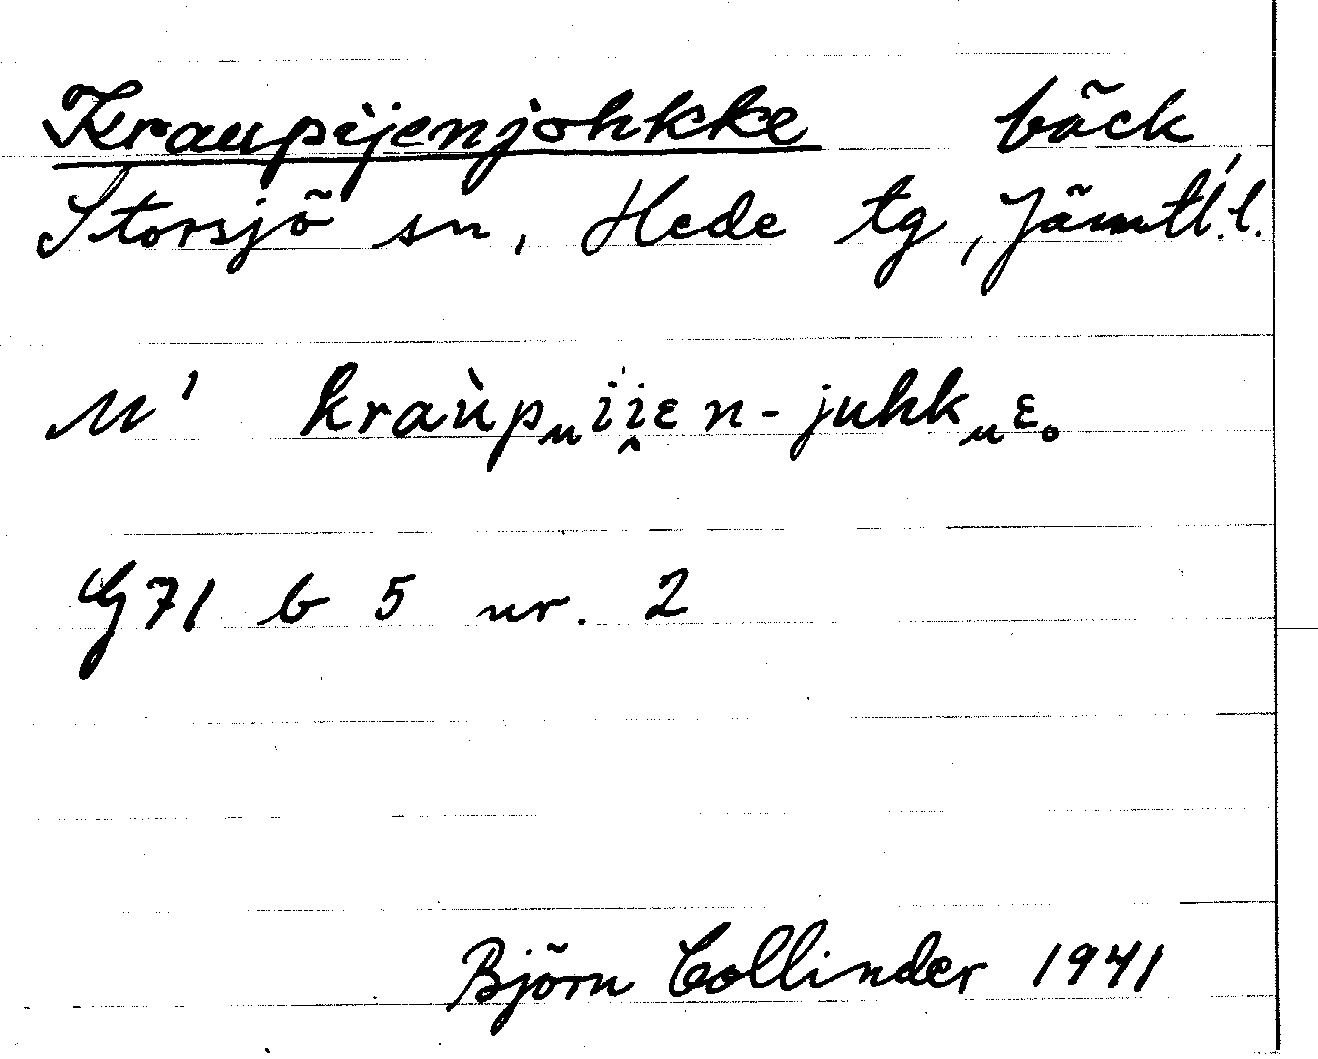 Kraupijenjohkke bäck
Storsjö sn, Hede tg, Jämtl. l.
M' kraùpᵤii̭ɛn-juhkᵤɛ.
G71 b 5 nr. 2
Björn Collinder 1941